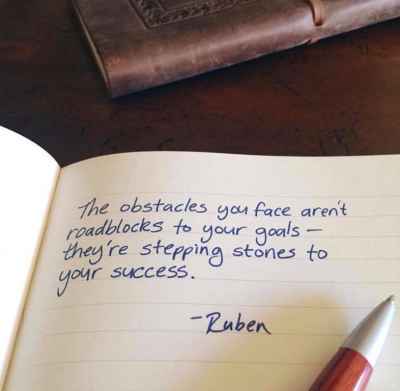 The obstacles you face aren't
roadblocks to your goals –
they're stepping stones to
your success.
-Ruben